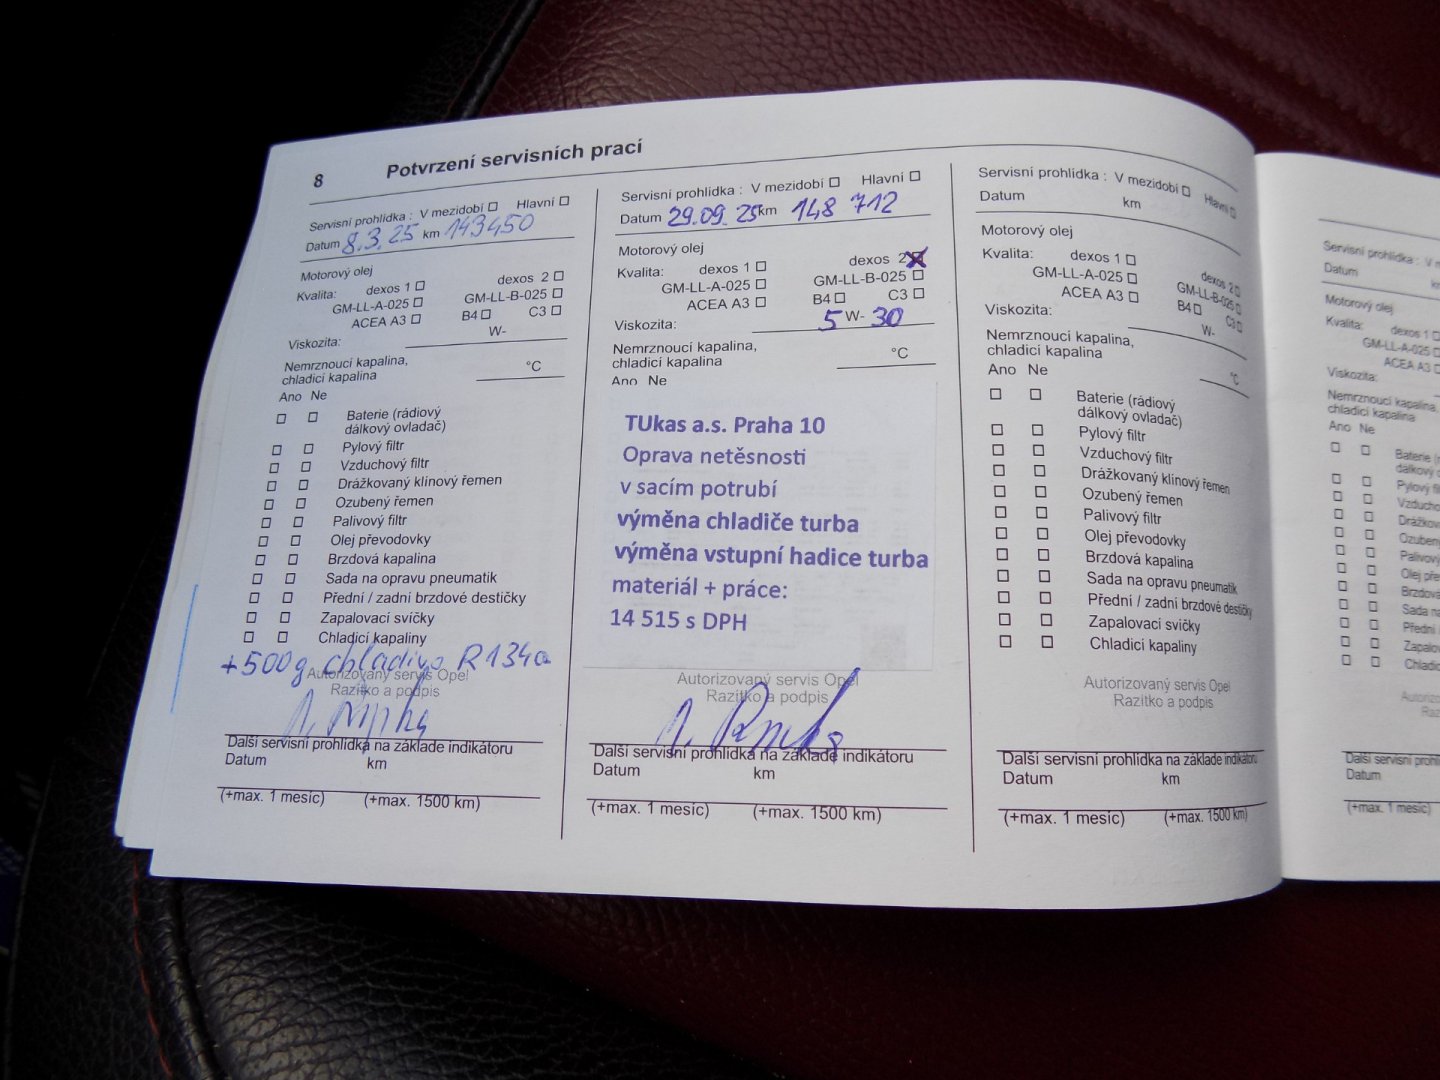 8 Potvrzení servisních prací
Servisní prohlídka : V mezidobí □ Hlavní □
Datum 8.3.25 km 143450
Motorový olej
Kvalita: dexos 1 □ dexos 2 □
GM-LL-A-025 □ GM-LL-B-025 □
ACEA A3 □ B4 □ C3 □
Viskozita: W-
Nemrznoucí kapalina,
chladicí kapalina °C
Ano Ne
□ □ Baterie (rádiový
dálkový ovladač)
□ □ Pylový filtr
□ □ Vzduchový filtr
□ □ Drážkovaný klínový řemen
□ □ Ozubený řemen
□ □ Palivový filtr
□ □ Olej převodovky
□ □ Brzdová kapalina
□ □ Sada na opravu pneumatik
□ □ Přední / zadní brzdové destičky
□ □ Zapalovací svíčky
□ □ Chladicí kapaliny
+500g chladivo R134a
Autorizovaný servis Opel
Razítko a podpis
Další servisní prohlídka na základe indikátoru
Datum km
(+max. 1 mesíc) (+max. 1500 km)
Servisní prohlídka : V mezidobí □ Hlavní □
Datum 29.09.25 km 148 712
Motorový olej
Kvalita: dexos 1 □ dexos 2 ☒
GM-LL-A-025 □ GM-LL-B-025 □
ACEA A3 □ B4 □ C3 □
Viskozita: 5 W- 30
Nemrznoucí kapalina,
chladicí kapalina °C
Ano Ne
TUkas a.s. Praha 10
Oprava netěsnosti
v sacím potrubí
výměna chladiče turba
výměna vstupní hadice turba
materiál + práce:
14 515 s DPH
Autorizovaný servis Opel
Razítko a podpis
Další servisní prohlídka na základe indikátoru
Datum km
(+max. 1 mesíc) (+max. 1500 km)
Servisní prohlídka : V mezidobí □ Hlavní □
Datum km
Motorový olej
Kvalita: dexos 1 □ dexos 2 □
GM-LL-A-025 □ GM-LL-B-025 □
ACEA A3 □ B4 □ C3 □
Viskozita: W-
Nemrznoucí kapalina,
chladicí kapalina °C
Ano Ne
□ □ Baterie (rádiový
dálkový ovladač)
□ □ Pylový filtr
□ □ Vzduchový filtr
□ □ Drážkovaný klínový řemen
□ □ Ozubený řemen
□ □ Palivový filtr
□ □ Olej převodovky
□ □ Brzdová kapalina
□ □ Sada na opravu pneumatik
□ □ Přední / zadní brzdové destičky
□ □ Zapalovací svíčky
□ □ Chladicí kapaliny
Autorizovaný servis Opel
Razítko a podpis
Další servisní prohlídka na základe indikátoru
Datum km
(+max. 1 mesíc) (+max. 1500 km)
Servisní prohlídka : V
Datum
Motorový olej
Kvalita: dexos 1 □
GM-LL-A-025 □
ACEA A3 □
Viskozita:
Nemrznoucí kapalina,
chladicí kapalina
Ano Ne
□ □ Baterie
□ □ Pylový
□ □
□ □
□ □
□ □ Palivový
□ □ Olej
□ □
□ □ Sada na
□ □ Přední
□ □
□ □
Další servisní
Datum
(+max. 1 mesíc)